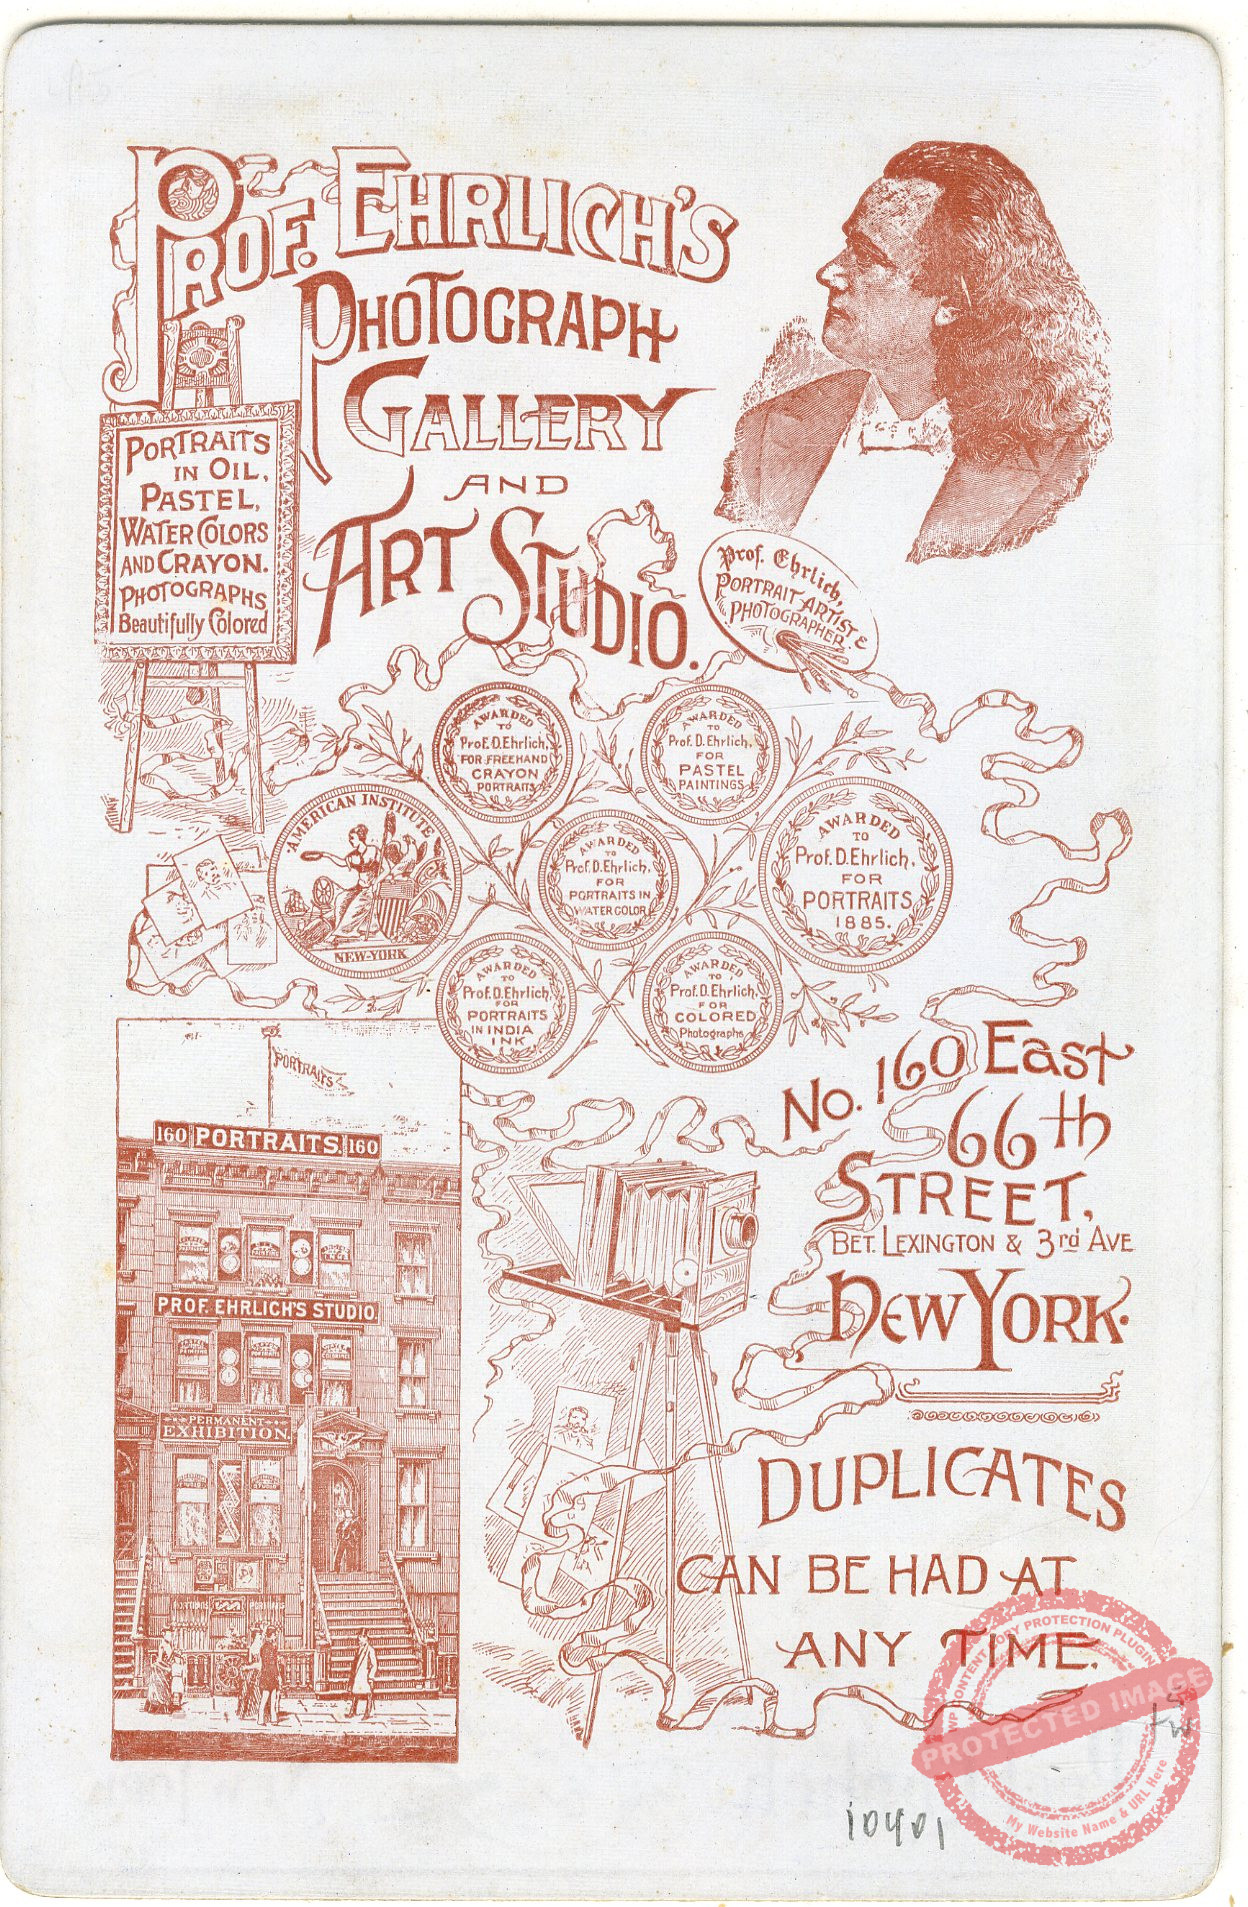 PROF. EHRLICH'S
PHOTOGRAPH
GALLERY
AND
ART STUDIO.
PORTRAITS
IN OIL,
PASTEL,
WATER COLORS
AND CRAYON.
PHOTOGRAPHS
Beautifully Colored
Prof. Ehrlich,
PORTRAIT ARTIST &
PHOTOGRAPHER
AWARDED
TO
Prof. D. Ehrlich,
FOR FREEHAND
CRAYON
PORTRAITS
AWARDED
TO
Prof. D. Ehrlich,
FOR
PASTEL
PAINTINGS
AMERICAN INSTITUTE
NEW-YORK
AWARDED
TO
Prof. D. Ehrlich,
FOR
PORTRAITS IN
WATER COLOR
AWARDED
TO
Prof. D. Ehrlich,
FOR
PORTRAITS
1885.
AWARDED
TO
Prof. D. Ehrlich,
FOR
PORTRAITS
IN INDIA
INK
AWARDED
TO
Prof. D. Ehrlich,
FOR
COLORED
Photographs
PORTRAITS
160 PORTRAITS. 160
PROF. EHRLICH'S STUDIO.
PERMANENT
EXHIBITION.
No. 160 East
66th
STREET,
BET. LEXINGTON & 3rd AVE
NEW YORK.
DUPLICATES
CAN BE HAD AT
ANY TIME.
PROTECTED IMAGE
My Website Name & URL Here
10401